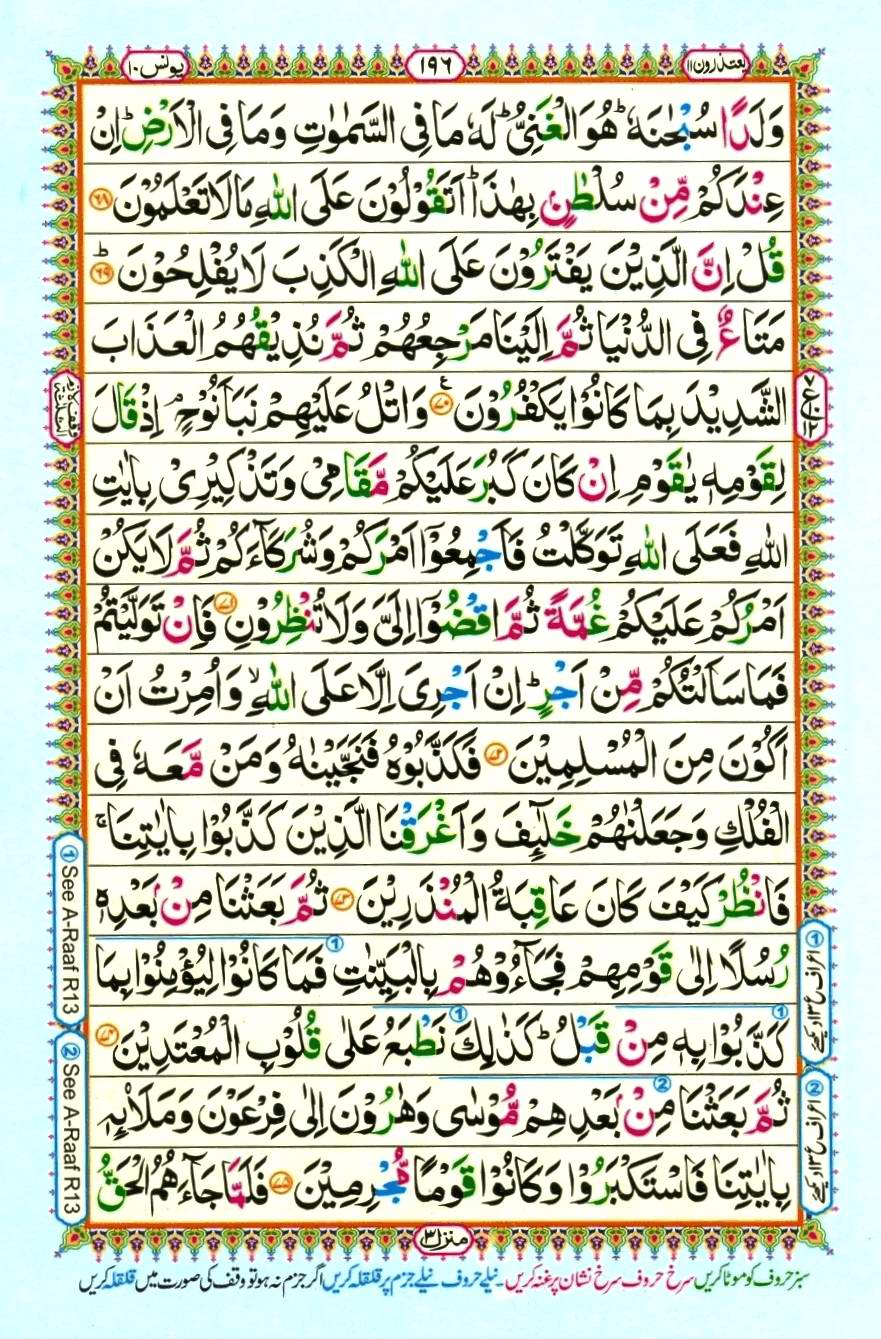 یعتذرون ۱۱
۱۹۶
یونس ۱۰
وَلَدًا سُبْحٰنَهٗ ؕ هُوَ الْغَنِیُّ ؕ لَهٗ مَا فِی السَّمٰوٰتِ وَمَا فِی الْاَرْضِ ؕ اِنْ
عِنْدَكُمْ مِّنْ سُلْطٰنٍۭ بِهٰذَا ؕ اَتَقُوْلُوْنَ عَلَی اللّٰهِ مَا لَا تَعْلَمُوْنَ ﴿۶۸﴾
قُلْ اِنَّ الَّذِیْنَ یَفْتَرُوْنَ عَلَی اللّٰهِ الْكَذِبَ لَا یُفْلِحُوْنَ ﴿۶۹﴾ ؕ
مَتَاعٌ فِی الدُّنْیَا ثُمَّ اِلَیْنَا مَرْجِعُهُمْ ثُمَّ نُذِیْقُهُمُ الْعَذَابَ
الشَّدِیْدَ بِمَا كَانُوْا یَكْفُرُوْنَ ﴿۷۰﴾ ع وَاتْلُ عَلَیْهِمْ نَبَاَ نُوْحٍ ۘ اِذْ قَالَ
لِقَوْمِهٖ یٰقَوْمِ اِنْ كَانَ كَبُرَ عَلَیْكُمْ مَّقَامِیْ وَتَذْكِیْرِیْ بِاٰیٰتِ
اللّٰهِ فَعَلَی اللّٰهِ تَوَكَّلْتُ فَاَجْمِعُوْۤا اَمْرَكُمْ وَشُرَكَآءَكُمْ ثُمَّ لَا یَكُنْ
اَمْرُكُمْ عَلَیْكُمْ غُمَّةً ثُمَّ اقْضُوْۤا اِلَیَّ وَلَا تُنْظِرُوْنِ ﴿۷۱﴾ فَاِنْ تَوَلَّیْتُمْ
فَمَا سَاَلْتُكُمْ مِّنْ اَجْرٍ ؕ اِنْ اَجْرِیَ اِلَّا عَلَی اللّٰهِ ۙ وَاُمِرْتُ اَنْ
اَكُوْنَ مِنَ الْمُسْلِمِیْنَ ﴿۷۲﴾ فَكَذَّبُوْهُ فَنَجَّیْنٰهُ وَمَنْ مَّعَهٗ فِی
الْفُلْكِ وَجَعَلْنٰهُمْ خَلٰٓىِٕفَ وَاَغْرَقْنَا الَّذِیْنَ كَذَّبُوْا بِاٰیٰتِنَا ۚ
فَانْظُرْ كَیْفَ كَانَ عَاقِبَةُ الْمُنْذَرِیْنَ ﴿۷۳﴾ ثُمَّ بَعَثْنَا مِنْۢ بَعْدِهٖ
رُسُلًا اِلٰی قَوْمِهِمْ فَجَآءُوْهُمْ بِالْبَیِّنٰتِ فَمَا كَانُوْا لِیُؤْمِنُوْا بِمَا
كَذَّبُوْا بِهٖ مِنْ قَبْلُ ؕ كَذٰلِكَ نَطْبَعُ عَلٰی قُلُوْبِ الْمُعْتَدِیْنَ ﴿۷۴﴾
ثُمَّ بَعَثْنَا مِنْۢ بَعْدِهِمْ مُّوْسٰی وَهٰرُوْنَ اِلٰی فِرْعَوْنَ وَمَلَا۠ىِٕهٖ
بِاٰیٰتِنَا فَاسْتَكْبَرُوْا وَكَانُوْا قَوْمًا مُّجْرِمِیْنَ ﴿۷۵﴾ فَلَمَّا جَآءَهُمُ الْحَقُّ
① See A-Raaf R13
② See A-Raaf R13
① اعراف ع ۱۳ دیکھئے
② اعراف ع ۱۳ دیکھئے
منزل ۳
سبز حروف کو موٹا کریں سرخ حروف سرخ نشان پر غنہ کریں۔ نیلے حروف نیلے جزم پر قلقلہ کریں اگر جزم نہ ہو تو وقف کی صورت میں قلقلہ کریں